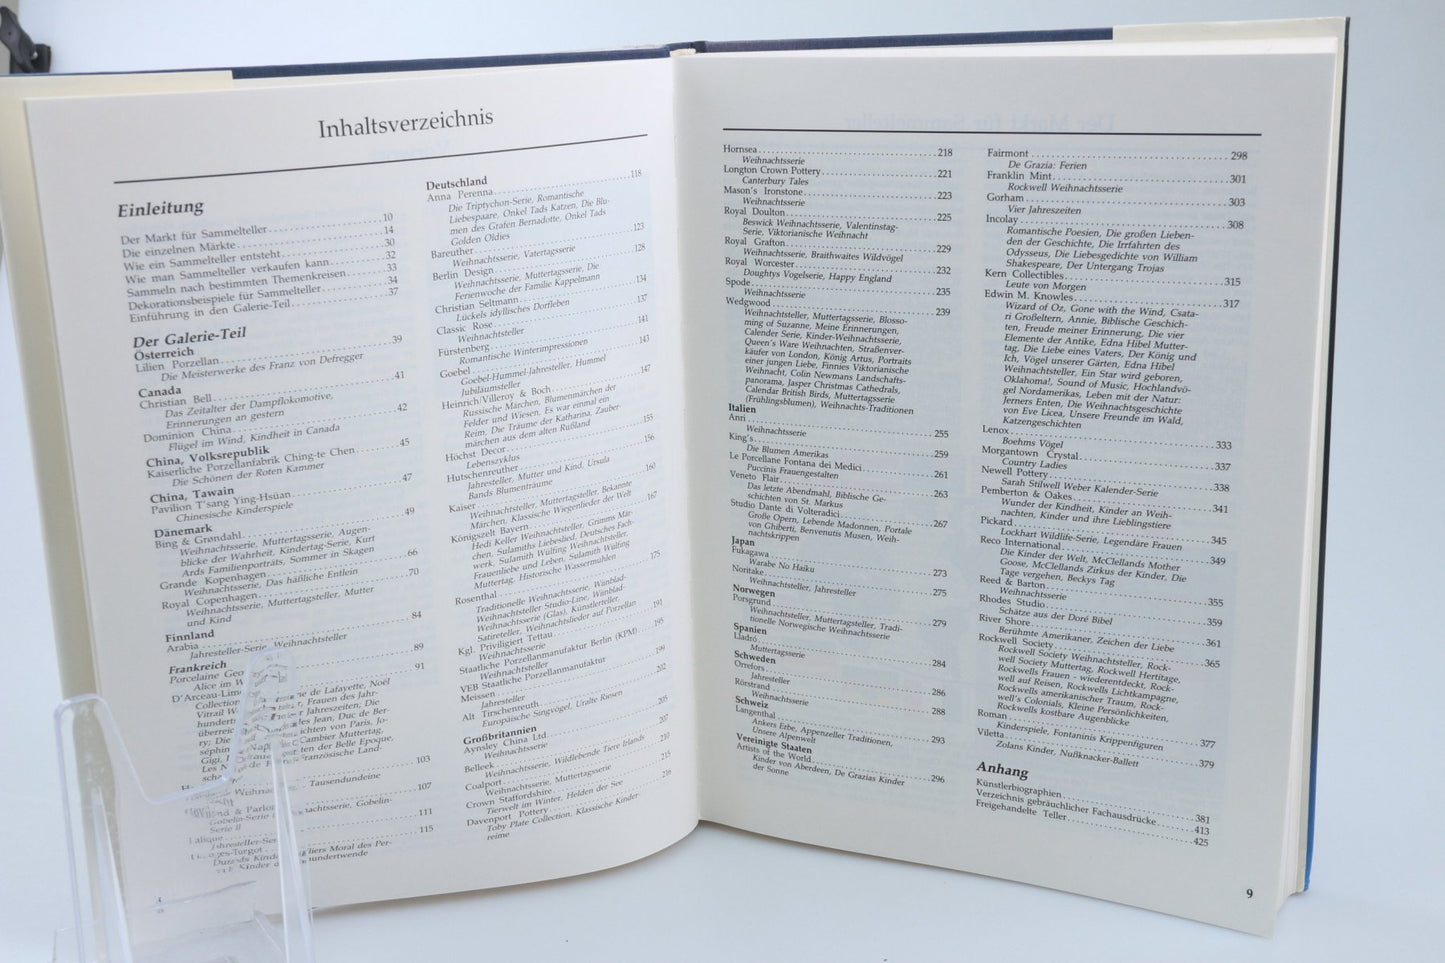 Inhaltsverzeichnis
Einleitung
Der Markt für Sammelteller 10
Die einzelnen Märkte 14
Wie ein Sammelteller entsteht 30
Wie man Sammelteller verkaufen kann 32
Sammeln nach bestimmten Themenkreisen 33
Dekorationsbeispiele für Sammelteller 34
Einführung in den Galerie-Teil 37
Der Galerie-Teil
Österreich
Lilien Porzellan 39
Die Meisterwerke des Franz von Defregger
Canada
Christian Bell 41
Das Zeitalter der Dampflokomotive,
Erinnerungen an gestern
Dominion China 42
Flügel im Wind, Kindheit in Canada
China, Volksrepublik
Kaiserliche Porzellanfabrik Ching-te Chen 45
Die Schönen der Roten Kammer
China, Tawain
Pavilion T'sang Ying-Hsüan 47
Chinesische Kinderspiele
Dänemark
Bing & Grøndahl 49
Weihnachtsserie, Muttertagsserie, Augen-
blicke der Wahrheit, Kindertag-Serie, Kurt
Ards Familienporträts, Sommer in Skagen
Grande Kopenhagen 66
Weihnachtsserie, Das häßliche Entlein
Royal Copenhagen 70
Weihnachtsserie, Muttertagsteller, Mutter
und Kind
Finnland
Arabia 84
Jahresteller-Serie, Weihnachtsteller
Frankreich 89
Porcelaine Geo
Alice im W 91
D'Arceau-Lim
Collection ne de Lafayette, Noël
Vitrail W Frauen des Jahr-
hundert r Jahreszeiten, Die
überrei des Jean, Duc de Ber-
ry; Die chten von Paris, Jo-
séphin Cambier Muttertag,
Gigi, ten der Belle Epoque,
Les N Französische Land-
scha
103
Weihnach Tausendundeine
107
& Parlon nachtsserie, Gobelin-
Gobelin-Serie
Serie II 111
Lalique
Jahresteller-Seri 115
es-Turgot
Kind liers Moral des Per-
Kinder hundertwende
Deutschland
Anna Perenna 118
Die Triptychon-Serie, Romantische
Liebespaare, Onkel Tads Katzen, Die Blu-
men des Grafen Bernadotte, Onkel Tads
Golden Oldies
Bareuther 123
Weihnachtsserie, Vatertagsserie
Berlin Design 128
Weihnachtsserie, Muttertagsserie, Die
Ferienwoche der Familie Kappelmann
Christian Seltmann 134
Lückels idyllisches Dorfleben
Classic Rose 137
Weihnachtsteller
Fürstenberg 141
Romantische Winterimpressionen
Goebel 143
Goebel-Hummel-Jahresteller, Hummel
Jubiläumsteller
Heinrich/Villeroy & Boch 147
Russische Märchen, Blumenmärchen der
Felder und Wiesen, Es war einmal ein
Reim, Die Träume der Katharina, Zauber-
märchen aus dem alten Rußland
Höchst Decor 155
Lebenszyklus
Hutschenreuther 156
Jahresteller, Mutter und Kind, Ursula
Bands Blumenträume
Kaiser 160
Weihnachtsteller, Muttertagsteller, Bekannte
Märchen, Klassische Wiegenlieder der Welt
Königszelt Bayern 167
Hedi Keller Weihnachtsteller, Grimms Mär-
chen, Sulamiths Liebeslied, Deutsches Fach-
werk, Sulamith Wülfing Weihnachtsteller,
Frauenliebe und Leben, Sulamith Wülfing
Muttertag, Historische Wassermühlen
Rosenthal 175
Traditionelle Weihnachtsserie, Wiinblad-
Weihnachtsteller Studio-Line, Wiinblad-
Weihnachtsserie (Glas), Künstlerteller,
Satireteller, Weihnachtslieder auf Porzellan
Kgl. Priviligiert Tettau 191
Weihnachtsserie
Staatliche Porzellanmanufaktur Berlin (KPM) 195
Weihnachtsteller
VEB Staatliche Porzellanmanufaktur
Meissen 199
Jahresteller
Alt Tirschenreuth 202
Europäische Singvögel, Uralte Riesen
Großbritannien
Aynsley China Ltd. 205
Weihnachtsserie
Belleek 207
Weihnachtsserie, Wildlebende Tiere Irlands
Coalport 210
Weihnachtsserie, Muttertagsserie
Crown Staffordshire 215
Tierwelt im Winter, Helden der See
Davenport Pottery 216
Toby Plate Collection, Klassische Kinder-
reime
Hornsea 218
Weihnachtsserie
Longton Crown Pottery 221
Canterbury Tales
Mason's Ironstone 223
Weihnachtsserie
Royal Doulton 225
Beswick Weihnachtsserie, Valentinstag-
Serie, Viktorianische Weihnacht
Royal Grafton 229
Weihnachtsserie, Braithwaites Wildvögel
Royal Worcester 232
Doughtys Vogelserie, Happy England
Spode 235
Weihnachtsserie
Wedgwood 239
Weihnachtsteller, Muttertagsserie, Blosso-
ming of Suzanne, Meine Erinnerungen,
Calender Serie, Kinder-Weihnachtsserie,
Queen's Ware Weihnachten, Straßenver-
käufer von London, König Artus, Portraits
einer jungen Liebe, Finnies Viktorianische
Weihnacht, Colin Newmans Landschafts-
panorama, Jasper Christmas Cathedrals,
Calendar British Birds, Muttertagsserie
(Frühlingsblumen), Weihnachts-Traditionen
Italien
Anri 255
Weihnachtsserie
King's 259
Die Blumen Amerikas
Le Porcellane Fontana dei Medici 261
Puccinis Frauengestalten
Veneto Flair 263
Das letzte Abendmahl, Biblische Ge-
schichten von St. Markus
Studio Dante di Volteradici 267
Große Opern, Lebende Madonnen, Portale
von Ghiberti, Benvenutis Musen, Weih-
nachtskrippen
Japan
Fukagawa 273
Warabe No Haiku
Noritake 275
Weihnachtsteller, Jahresteller
Norwegen
Porsgrund 279
Weihnachtsteller, Muttertagsteller, Tradi-
tionelle Norwegische Weihnachtsserie
Spanien
Lladró 284
Muttertagsserie
Schweden
Orrefors 286
Jahresteller
Rörstrand 288
Weihnachtsserie
Schweiz
Langenthal 293
Ankers Erbe, Appenzeller Traditionen,
Unsere Alpenwelt
Vereinigte Staaten
Artists of the World 296
Kinder von Aberdeen, De Grazias Kinder
der Sonne
Fairmont 298
De Grazia: Ferien
Franklin Mint 301
Rockwell Weihnachtsserie
Gorham 303
Vier Jahreszeiten
Incolay 308
Romantische Poesien, Die großen Lieben-
den der Geschichte, Die Irrfahrten des
Odysseus, Die Liebesgedichte von William
Shakespeare, Der Untergang Trojas
Kern Collectibles 315
Leute von Morgen
Edwin M. Knowles 317
Wizard of Oz, Gone with the Wind, Csata-
ri Großeltern, Annie, Biblische Geschich-
ten, Freude meiner Erinnerung, Die vier
Elemente der Antike, Edna Hibel Mutter-
tag, Die Liebe eines Vaters, Der König und
Ich, Vögel unserer Gärten, Edna Hibel
Weihnachtsteller, Ein Star wird geboren,
Oklahoma!, Sound of Music, Hochlandvö-
gel Nordamerikas, Leben mit der Natur:
Jerners Enten, Die Weihnachtsgeschichte
von Eve Licea, Unsere Freunde im Wald,
Katzengeschichten
Lenox 333
Boehms Vögel
Morgantown Crystal 337
Country Ladies
Newell Pottery 338
Sarah Stilwell Weber Kalender-Serie
Pemberton & Oakes 341
Wunder der Kindheit, Kinder an Weih-
nachten, Kinder und ihre Lieblingstiere
Pickard 345
Lockhart Wildlife-Serie, Legendäre Frauen
Reco International 349
Die Kinder der Welt, McClellands Mother
Goose, McClellands Zirkus der Kinder, Die
Tage vergehen, Beckys Tag
Reed & Barton 355
Weihnachtsserie
Rhodes Studio 359
Schätze aus der Doré Bibel
River Shore 361
Berühmte Amerikaner, Zeichen der Liebe
Rockwell Society 365
Rockwell Society Weihnachtsteller, Rock-
well Society Muttertag, Rockwell Heritage,
Rockwells Frauen - wiederentdeckt, Rock-
well auf Reisen, Rockwells Lichtkampagne,
Rockwells amerikanischer Traum, Rock-
well's Colonials, Kleine Persönlichkeiten,
Rockwells kostbare Augenblicke
Roman 377
Kinderspiele, Fontaninis Krippenfiguren
Viletta 379
Zolans Kinder, Nußknacker-Ballett
Anhang
Künstlerbiographien 381
Verzeichnis gebräuchlicher Fachausdrücke 413
Freigehandelte Teller 425
9